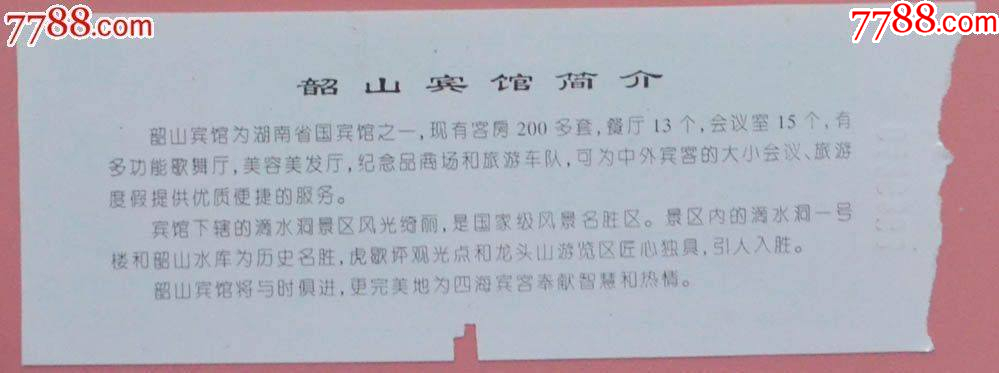 7788.com
7788.com
韶山宾馆简介
韶山宾馆为湖南省国宾馆之一,现有客房200多套,餐厅13个,会议室15个,有
多功能歌舞厅,美容美发厅,纪念品商场和旅游车队,可为中外宾客的大小会议、旅游
度假提供优质便捷的服务。
宾馆下辖的滴水洞景区风光绮丽,是国家级风景名胜区。景区内的滴水洞一号
楼和韶山水库为历史名胜,虎歇坪观光点和龙头山游览区匠心独具,引人入胜。
韶山宾馆将与时俱进,更完美地为四海宾客奉献智慧和热情。